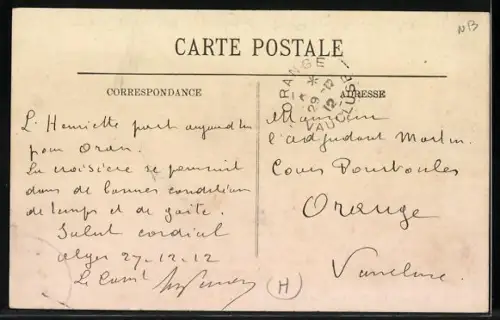 NB
CARTE POSTALE
CORRESPONDANCE
ADRESSE
ORANGE
29 -12
12
VAUCLUSE
L'Henriette part aujourd'hui
pour Oran.
La croisière se poursuit
dans de bonnes conditions
de temps et de gaité.
Salut cordial
Alger 27-12-12
Le Comt
Monsieur
l'adjudant Martin
Cours Pourtoules
Orange
Vaucluse
H